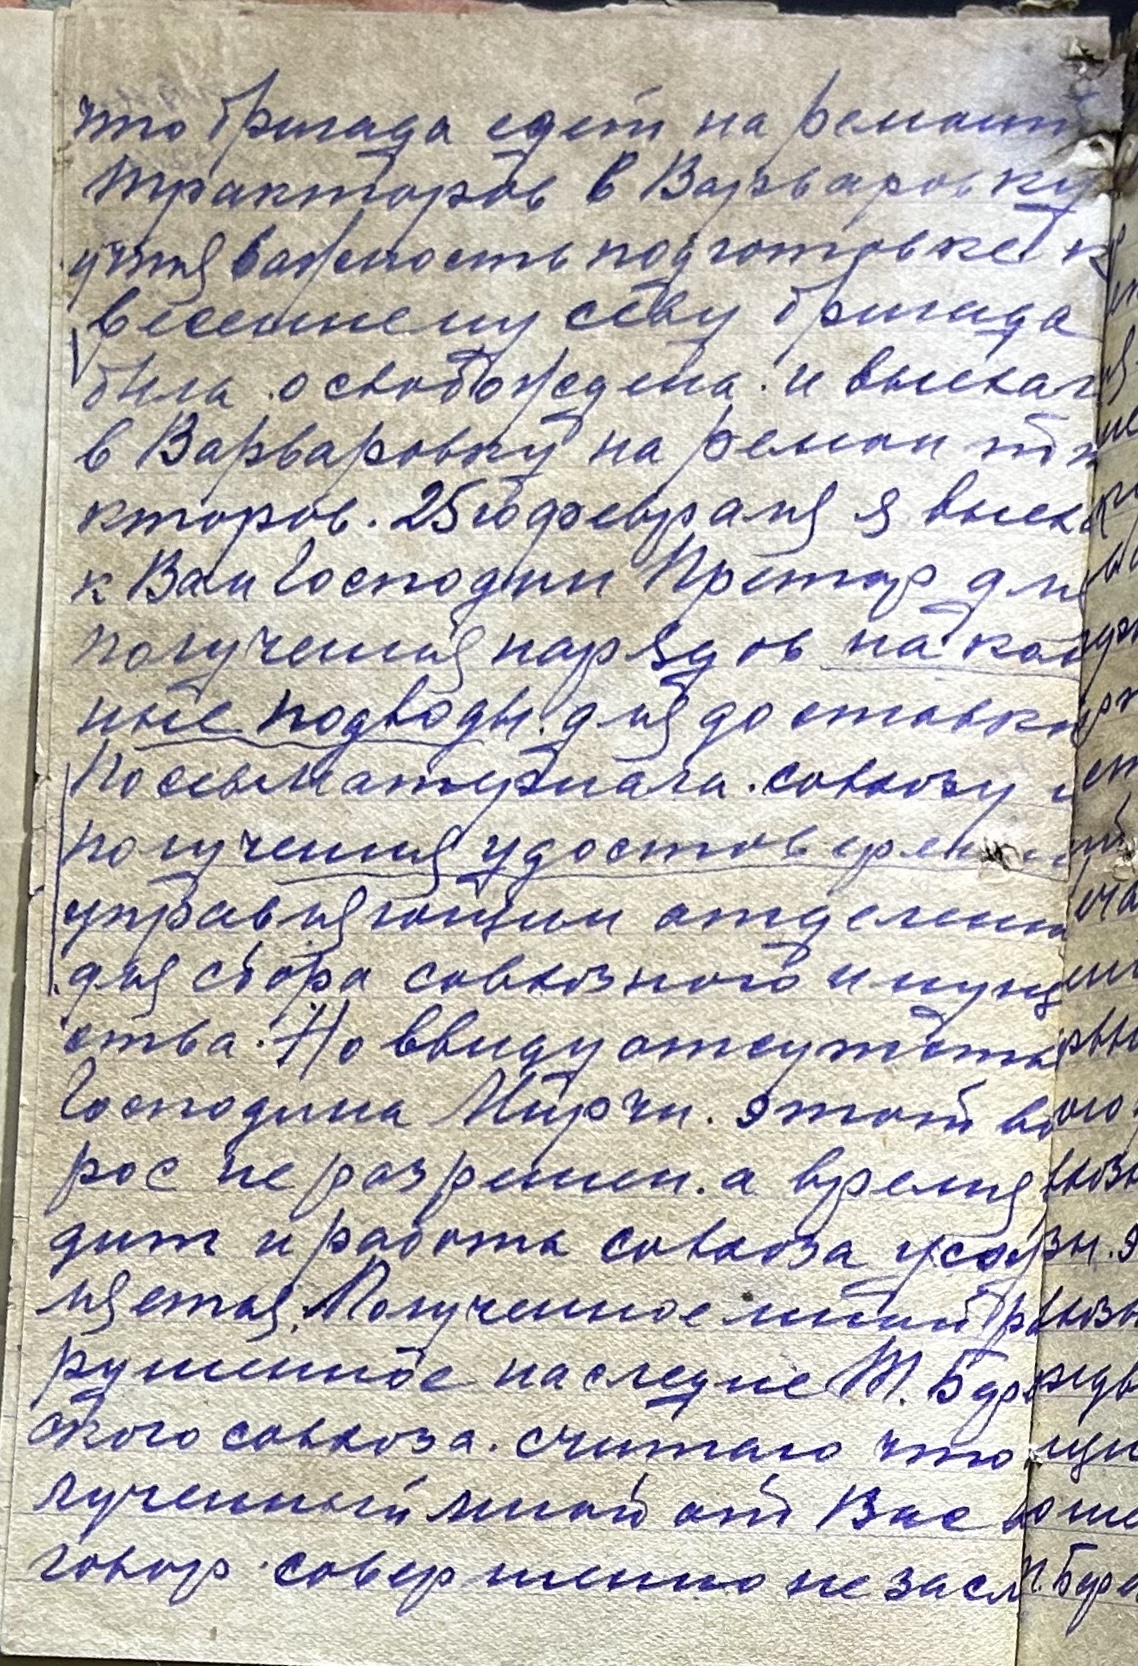 что бригада едет на ремонт
тракторов в Варваровку
учтя важность подготовке к
весеннему севу бригада
била освобождена и выехал
в Варваровку на ремон т
кторов. 25го февраля я выех
к Вам Господин Претор для
получения нарядов на кон
ные подводы для доставки
Посевматериала совхозу и
получения удостоверен
управляющим отделени
для сбора совхозного имущ
ства. Но ввиду отсутстви
Господина Мирчи. этот во
рос не разрешен. а время
дит и работа совхоза усо
ляется. Полученное мной
рушенное наследие Т. Бур
ского совхоза. считаю что
лученный мной от Вас
говор совершенно не засл